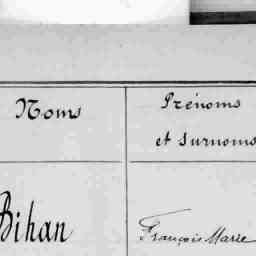 Noms
Prénoms
et surnoms
Bihan
François Marie